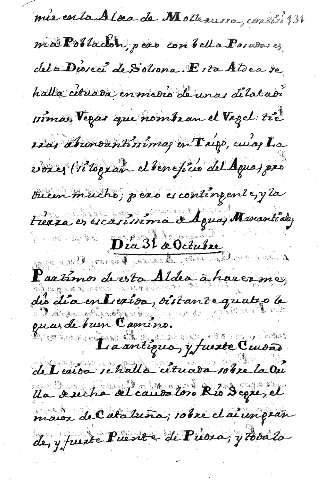 mir en la Aldea de Mollerussa, cortissi 131
ma Poblacion, pero con bella Posada: es
de la Diosecí de Solsona. Esta Aldea se
halla cituada, en medio de unas dilatadi
ssimas Vegas que nombran el Vrgel: tie
rras abundantissimas en Trigo, cuias La
vores (si logran el beneficio del Agua) pro
ducen mucho; pero es contingente, y la
tierra es escasissima de Aguas Manantiales,
Dia 31 de Octubre
Partimos de esta Aldea à hacer me,
dio dia en Lerida, distante quatro le
guas de buen Camino.
La antigua, y fuerte Ciudad
de Lerida se halla cituada sobre la Ori
lla derecha del caudaloso Rio Segre, el
maior de Cataluña; sobre el ai un gran
de, y fuerte Puente de Piedra; y toda la